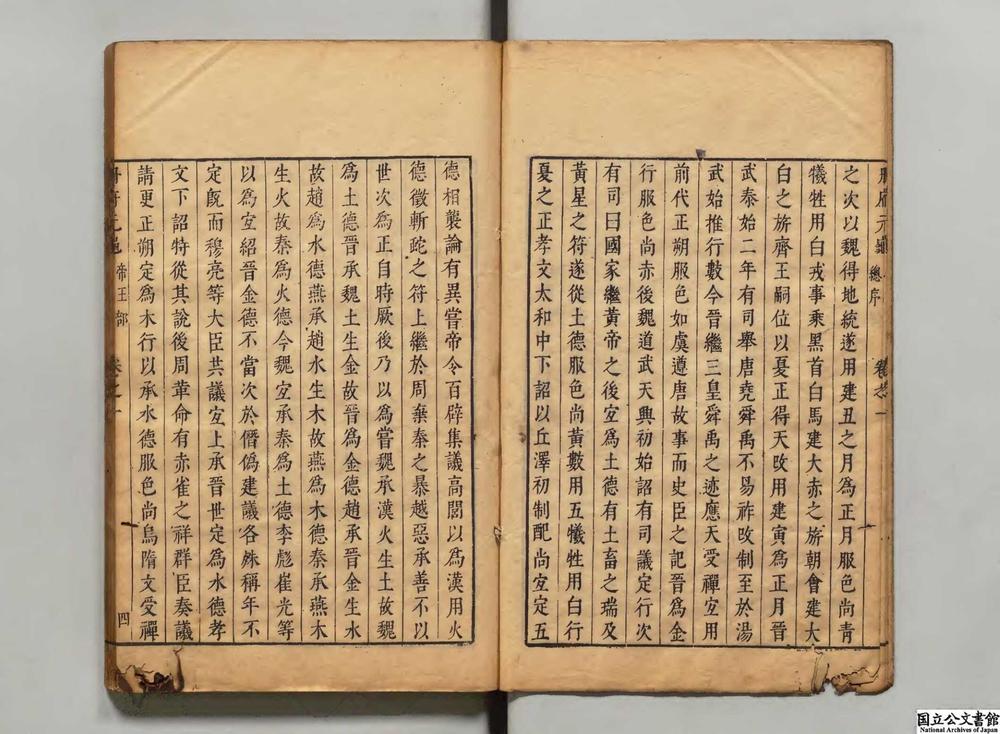 冊府元龜 總序 卷之一
之次以魏得地統遂用建丑之月為正月服色尚青
犧牲用白戎事乗黑首白馬建大赤之旂朝會建大
白之旂齊王嗣位以夏正得天攺用建寅為正月晉
武泰始二年有司舉唐堯舜禹不昜祚攺制至於湯
武始推行數今晉繼三皇舜禹之迹應天受禪宐用
前代正朔服色如虞遵唐故事而史臣之記晉為金
行服色尚赤後魏道武天興初始詔有司議定行次
有司曰國家繼黃帝之後宐為土德有土畜之瑞及
黃星之符遂從土德服色尚黃數用五犧牲用白行
夏之正孝文太和中下詔以丘澤初制配尚宐定五
德相襲論有異嘗帝令百辟集議高閭以為漢用火
德徵斬虵之符上繼於周棄秦之暴越惡承善不以
世次為正自時厥後乃以為嘗魏承漢火生土故魏
為土德晉承魏土生金故晉為金德趙承晉金生水
故趙為水德燕承趙水生木故燕為木德秦承燕木
生火故秦為火德今魏宐承秦為土德李彪崔光等
以為宐紹晉金德不當次於僭偽建議各殊稱年不
定旣而穆亮等大臣共議宐上承晉世定為水德孝
文下詔特從其說後周革命有赤雀之祥群臣奏議
請更正朔定為木行以承水德服色尚烏隋文受禪
冊府元龜 帝王部 卷之一 四
国立公文書館
National Archives of Japan